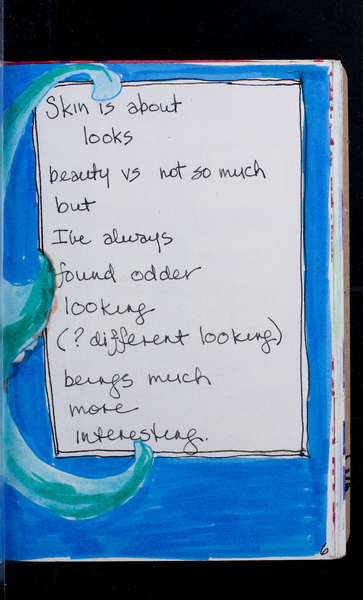 Skin is about
looks
beauty vs not so much
but
I've always
found odder
looking
(? different looking)
beings much
more
interesting.
6